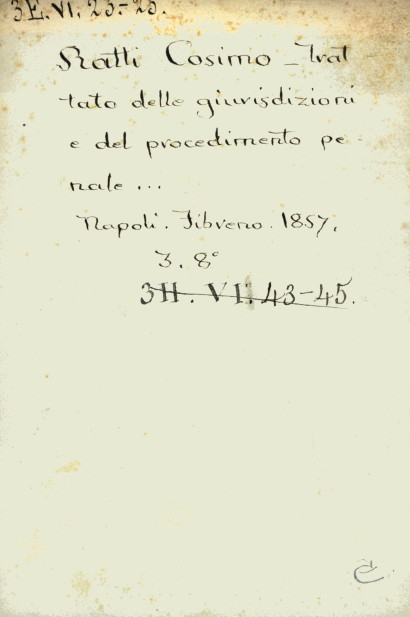 3E. VI, 23-25.
Ratti Cosimo - Trat
tato delle giurisdizioni
e del procedimento pe-
nale ...
Napoli. Fibreno. 1857.
3. 8°
3H. VI. 43-45.